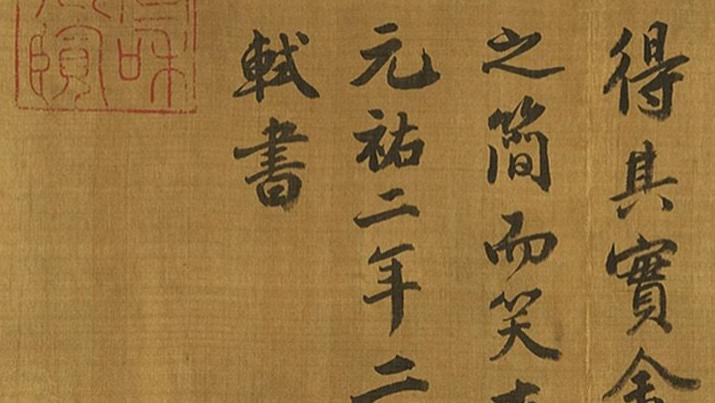 得其實余
之簡而笑
元祐二年二
軾書